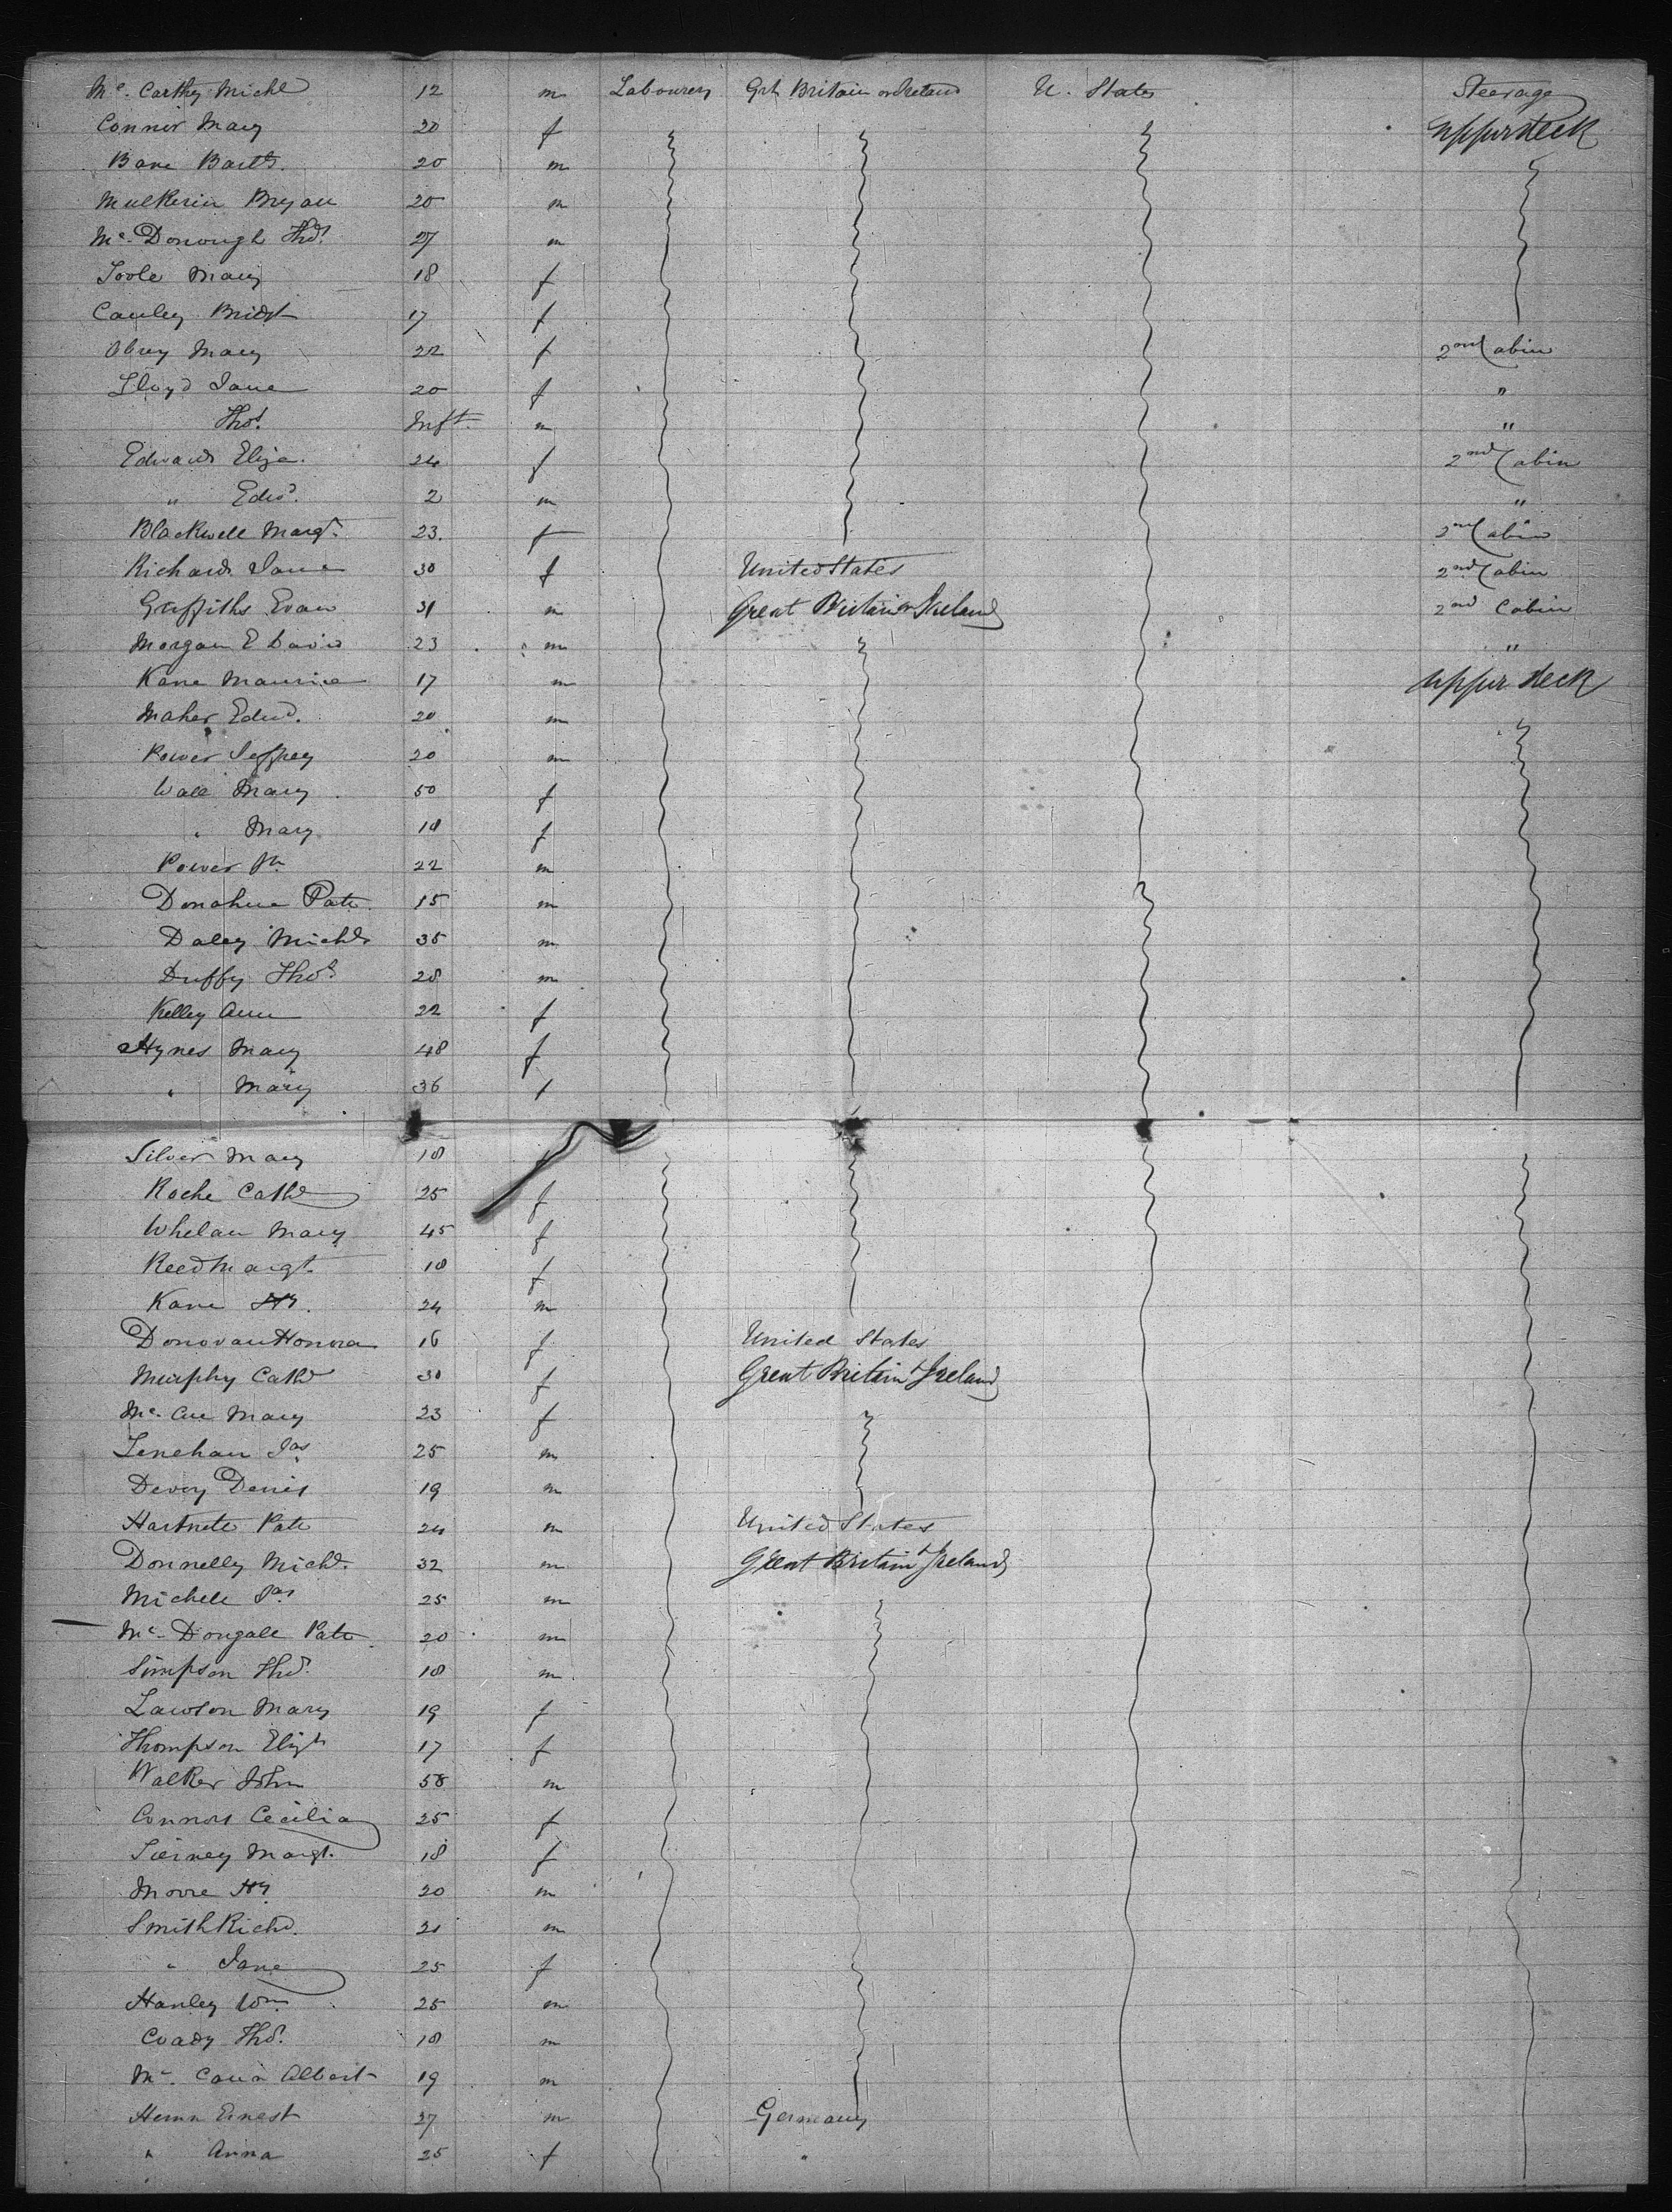 Mc. Carthy Michl 12 m Labourers Grt. Britain or Ireland U. States Steerage
Connor Mary 20 f upper deck
Bane Barth. 20 m
Mulkerin Bryan 20 m
Mc. Donough Thos. 27 m
Toole Mary 18 f
Cauley Bridt 17 f
Obrey Mary 22 f 2nd Cabin
Lloyd Jane 20 f "
Thos. Inft. m "
Edwards Eliza. 24 f 2nd Cabin
" Edwd. 2 m "
Blackwell Margt. 23. f 2nd Cabin
Richards Jane 30 f United States 2nd Cabin
Griffiths Evan 31 m Great Britain or Ireland 2nd Cabin
Morgan E David 23 m "
Kane Maurice 17 m upper deck
Maher Edwd. 20 m
Power Jeffrey 20 m
Wall Mary 50 f
" Mary 18 f
Power 22 m
Donahue Patk. 15 m
Daley Michl 35 m
Duffy Thos 28 m
Kelley Ann 22 f
Hynes Mary 48 f
" Mary 36 f
Silver Mary 18 f
Roche Cathe 25 f
Whelan Mary 45 f
Reed Margt. 18 f
Kane Hy. 24 m
Donovan Honora 16 f United States
Murphy Cathe 30 f Great Britain & Ireland
Mc. Cue Mary 23 f
Lenehan Jas 25 m
Devoy Denis 19 m
Hartnett Patk 24 m United States
Donnelly Michl. 32 m Great Britain & Ireland
Michell Jas 25 m
Mc. Dougall Patk. 20 m
Simpson Thos. 18 m
Lawson Mary 19 f
Thompson Elizh 17 f
Walker John 58 m
Connors Cecilia 25 f
Tierney Margt. 18 f
Moore Hy. 20 m
Smith Richd. 21 m
" Jane 25 f
Hanley Wm. 25 m
Coady Thos. 18 m
Mc. Cann Albert 19 m
Ernest 27 m Germany
" Anna 25 f "